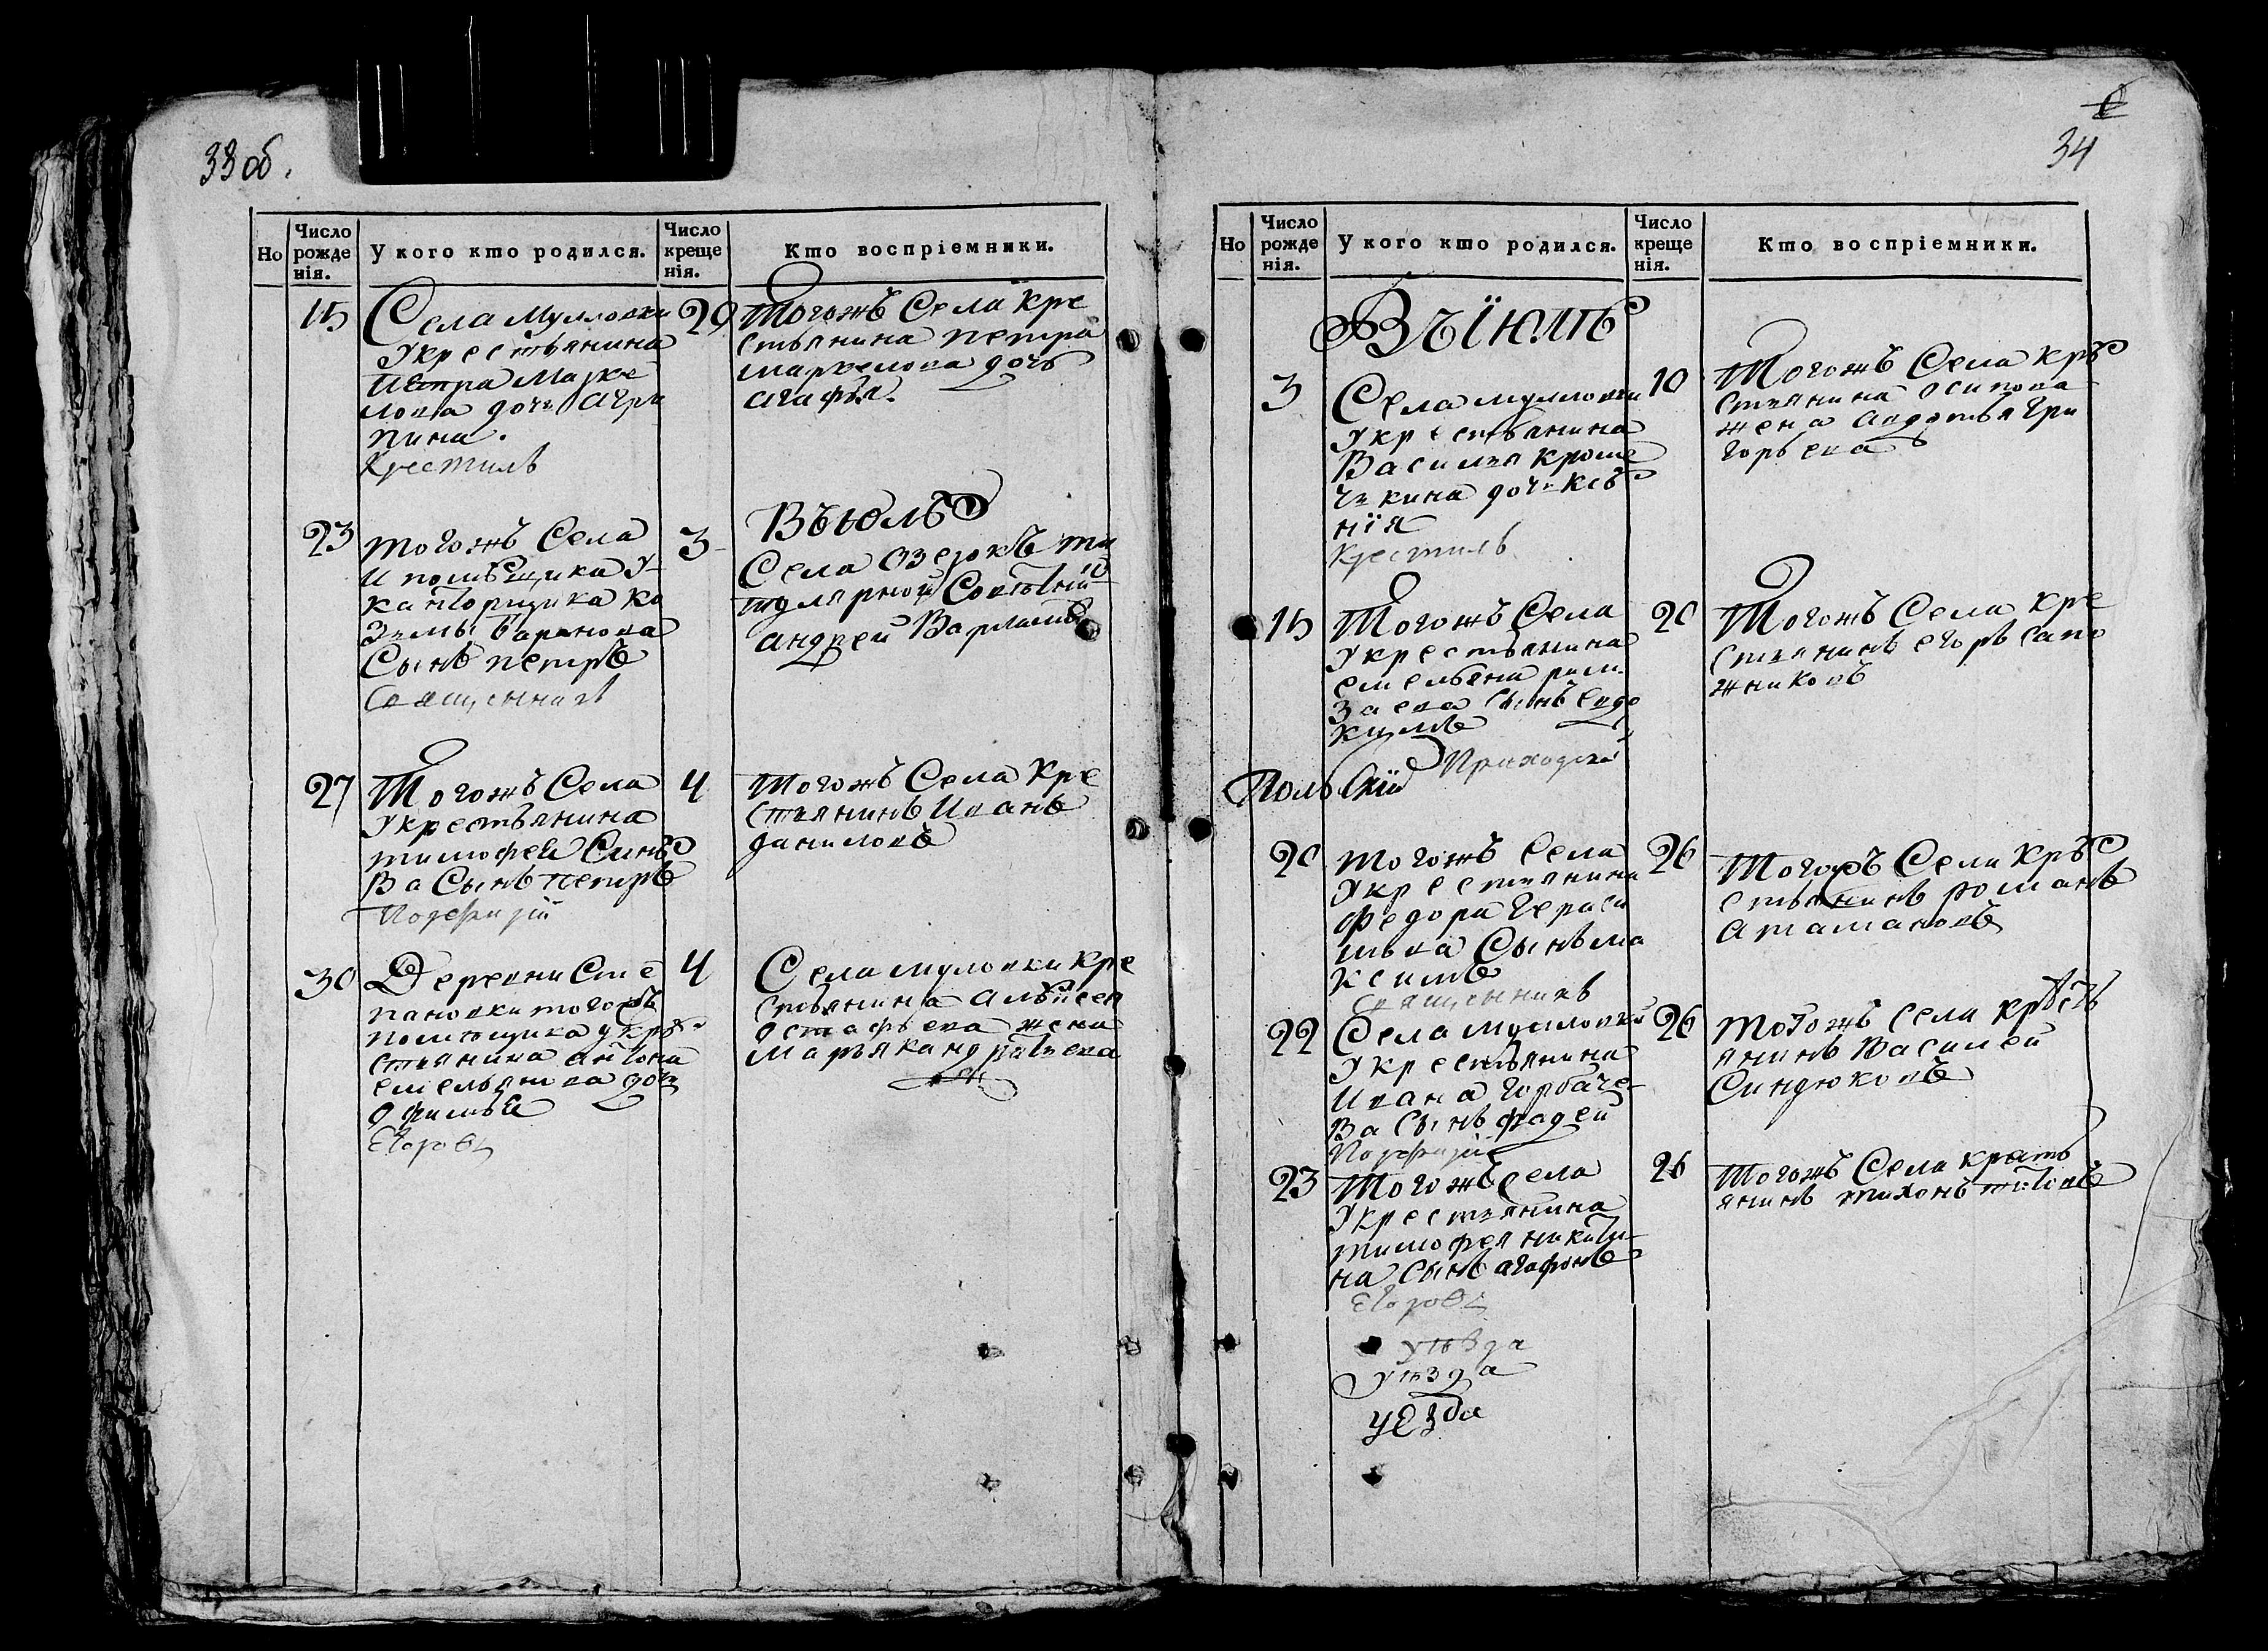 33 об.
Но
Число рожденія.
У кого кто родился.
Число крещенія.
Кто воспріемники.
15
Села Мулловки
у крестьянина
Петра Марке
лова дочь Агри
пина.
Крестилъ
29
Тогожъ Села кре
стьянина петра
маркелова дочь
агафья.
23
тогожъ Села
и помѣщика у
канторщика ко
змы баранова
Сынъ петръ
Священникъ
3
Въ июлѣ
Села Озерокъ ти
тулярной Совѣтни
андрей Варламовъ
27
Тогожъ Села
у крестьянина
тимофея Синѣ
ва Сынъ петръ
Порфирій
4
тогожъ Села кре
стьянинъ Иванъ
даниловъ
30
Деревни Сте
пановки тогожъ
помѣщика у кре
стьянина антона
емельянова дочь
офимья
Егоровъ
4
Села муловки кре
стьянина алѣксея
остафьева жена
марья кандратьева
34
Но
Число рожденія.
У кого кто родился.
Число крещенія.
Кто воспріемники.
Въ Їюлѣ
3
Села мулловки
у крестьянина
Василья кроше
чкина дочь ксѣ
нїя
Крестилъ
10
Тогожъ Села крѣ
стьянина осипова
жена авдотья гри
горьева
15
Тогожъ Села
у крестьянина
емельяна рим
заева Сынъ евдо
кимъ
Приходской
20
Тогожъ Села кре
стьянинъ егоръ сапо
жниковъ
Польскїй
20
тогожъ Села
у крестьянина
федора гераси
мова Сынъ ма
ксимъ
Священникъ
26
Тогожъ Села крѣ
стьянинъ романъ
атамановъ
22
Села мулловки
у крестьянина
Ивана горбаче
ва Сынъ фадей
Порфирій
26
тогожъ Села крѣсть
янинъ Василей
Синдюковъ
23
тогожъ Села
у крестьянина
тимофея никити
на Сынъ агафонъ
Егоровъ
26
тогожъ Села кресть
янинъ тихонъ титовъ
уѣзда
уѣзда
уезда